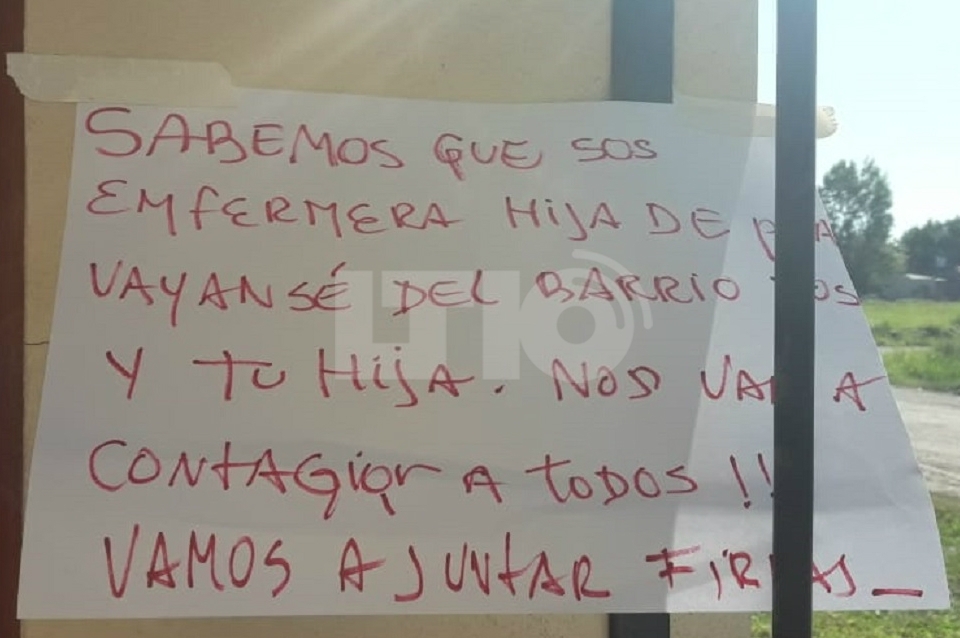 SABEMOS QUE SOS
ENFERMERA HIJA DE
VAYANSÉ DEL BARRIO VOS
Y TU HIJA. NOS VAN A
CONTAGIAR A TODOS !!
VAMOS A JUNTAR FIRMAS_
LT10